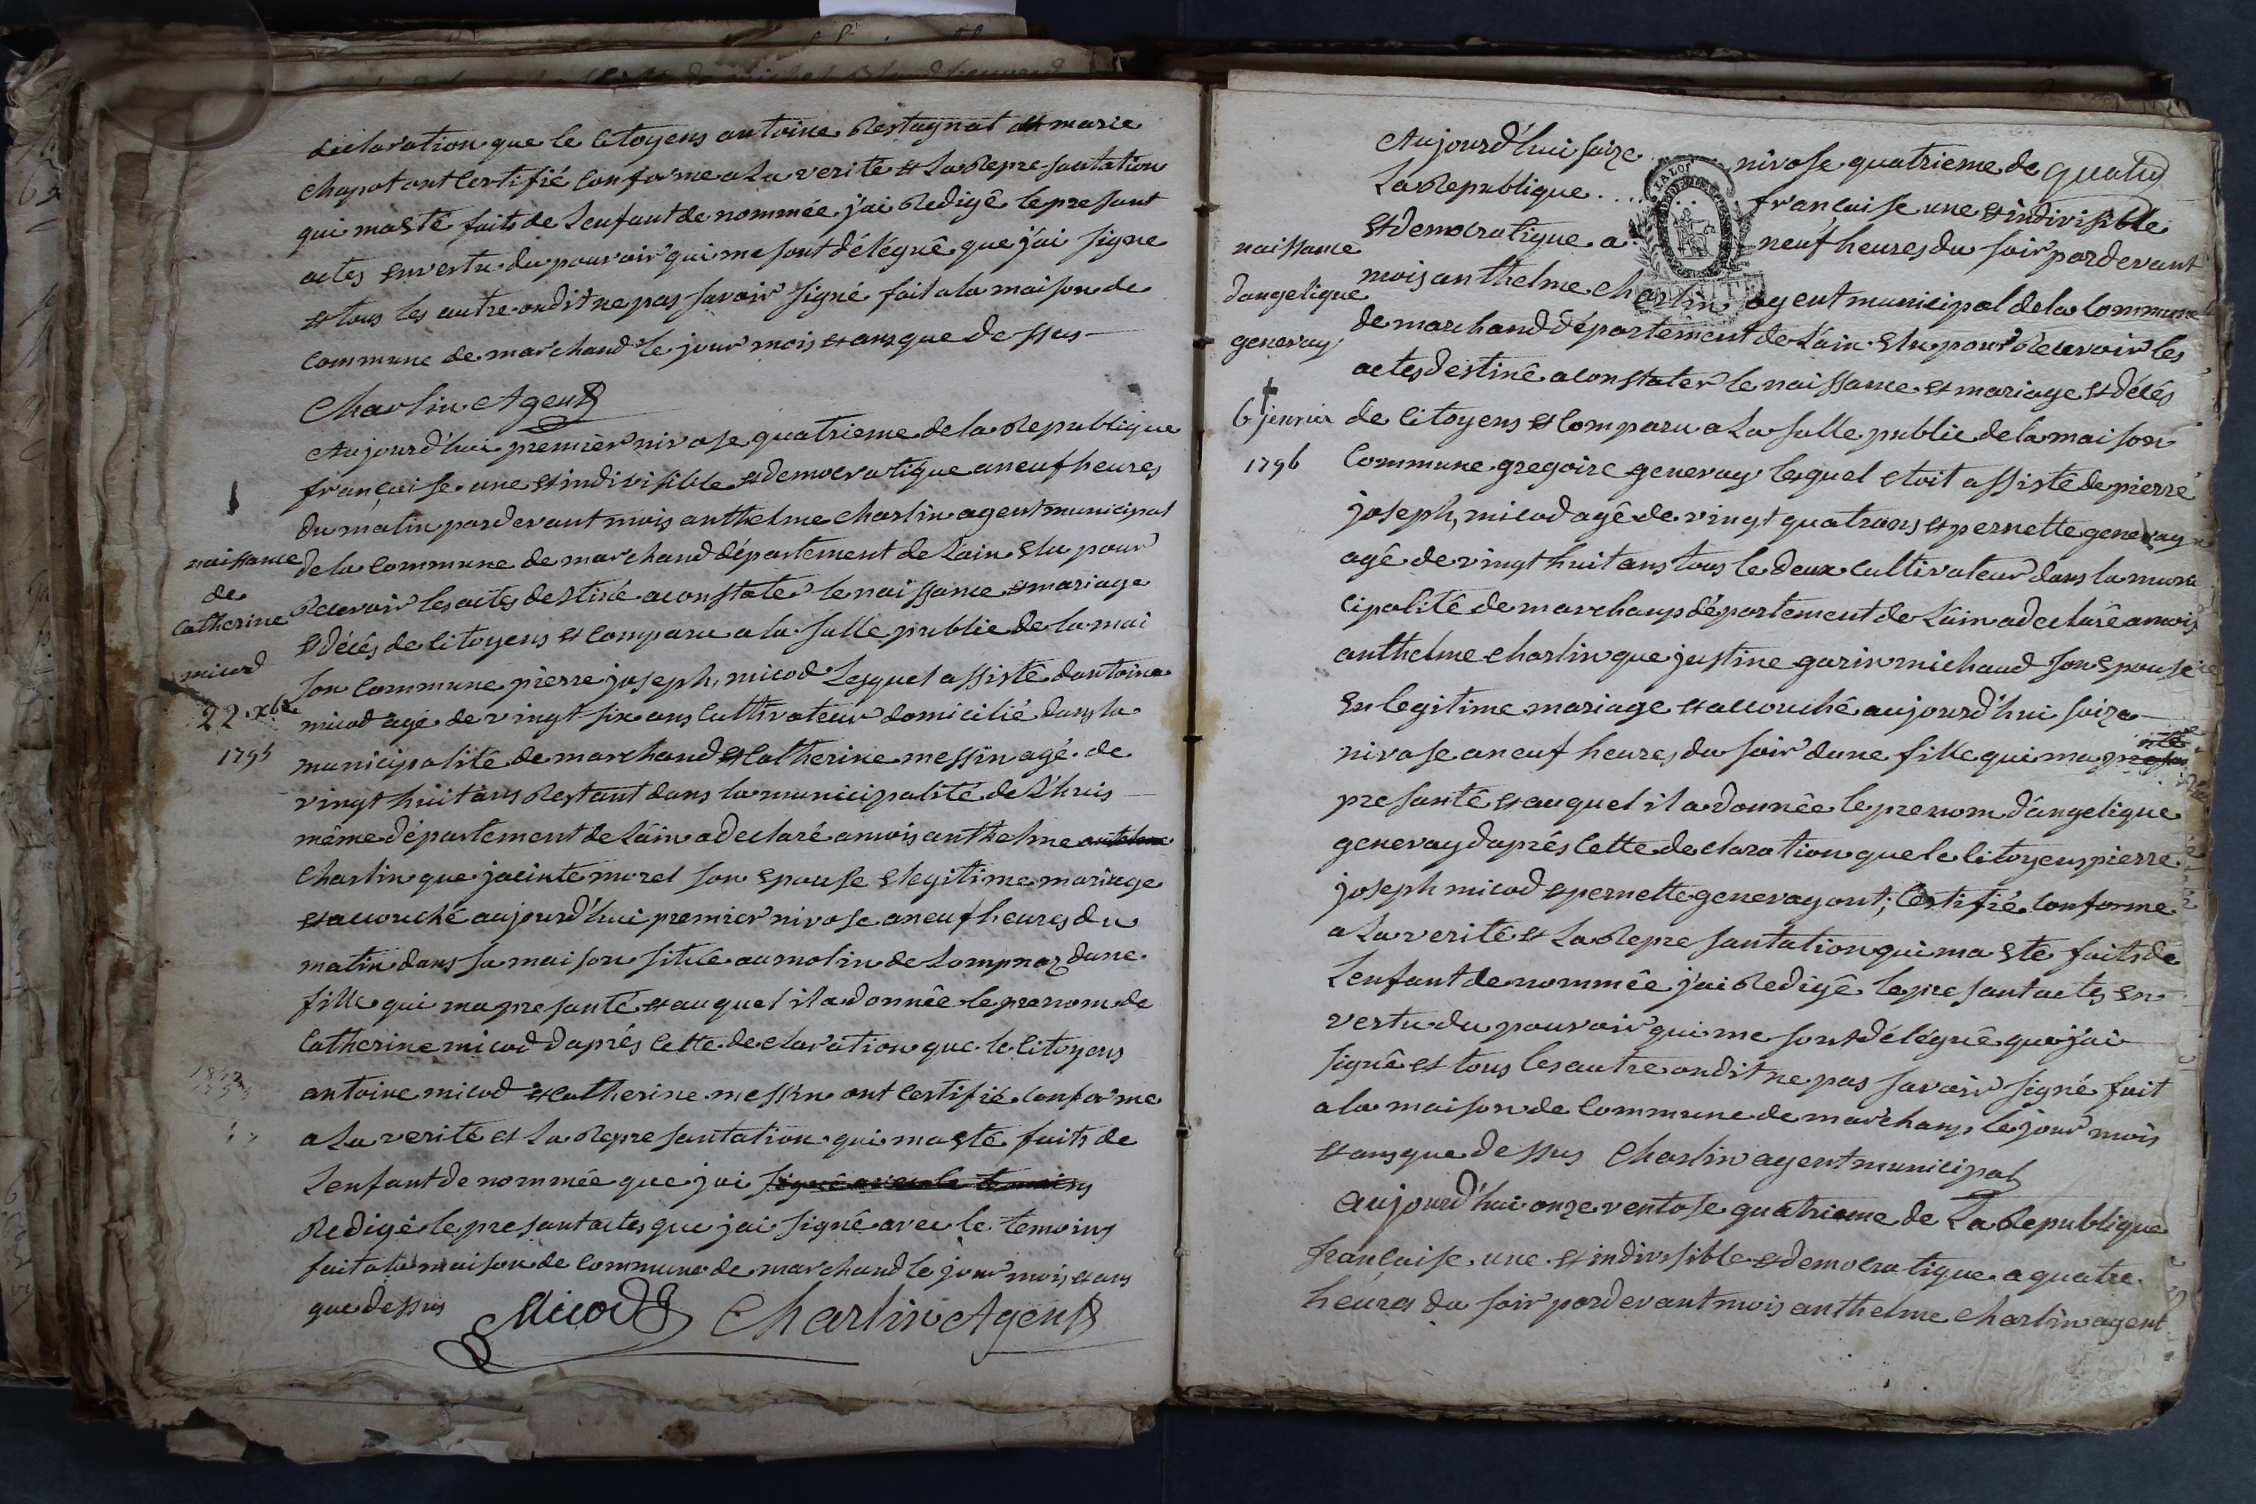 declaration que le Citoyens antoine Restagnat et marie
chapot ont Certifié Conforme a La verite et La Represantation
qui ma Eté faits de Lenfant de nommée j'ai Redigê le presant
actes En vertu du pouvoir qui me sont délégué que j'ai signe
et tous les autre on dit ne pas savoir signé fait a la maison de
Commune de marchand le jour mois et ans que dessus
Charlin Agent
naissance
de
Catherine
micod
22 xbre
1795
Aujourd'hui premier nivose quatrieme de la Republique
française une et indivisible et democratique a neuf heures
du matin pardevant mois anthelme Charlin agent municipal
de la Commune de marchand département de Lain Elu pour
Recevoir les actes destiné a constater le naissance et mariage
et décés de Citoyens et Comparu a la salle public de la mai
son Commune pierre joseph micod Lesquel assisté dantoine
micod agé de vingt six ans Cultivateur domicilié dans la
municipalité de marchand et Catherine messin agé de
vingt huit ans Restant dans la municipalité de Lhuis
même département de Lâin a declaré a mois anthelme
Charlin que jacinte morel son Epouse Elegitime mariage
et accouché aujourd'hui premier nivose a neuf heures du
matin dans sa maison sitile au molin de Lompnaz dune
fille qui ma presanté et auquel il a donnée le prenom de
Catherine micod d'aprés Cette declaration que le Citoyens
antoine micod et Catherine messin ont Certifié Conforme
a La verité et La Represantation qui ma Eté faits de
Lenfant de nommée que j'ai signé avec le temoins
Redigé le presant actes que j'ai signê avec le temoins
fait a la maison de Commune de marchand le jour mois et ans
que dessus
Micod Charlin Agent
naissance
dangelique
genevay
6 jenvier
1796
Aujourd'hui saize nivose quatrieme de quatre
La Republique . . . . française une et indivisible
et democratique a neuf heures du soir pardevant
LA LOI
mois anthelme Charlin agent municipal de la Commune
de marchand département de Lain Elu pour Recevoir les
actes destiné a constater le naissance et mariage et décés
de Citoyens et Comparu a La salle public de la maison
Commune gregoire genevay lesquel etoit assisté de pierre
joseph micod agê de vingt quatr ans et pernette genevay
agê de vingt huit ans tous le deux Cultivateur dans la muni
cipalité de marchamp département de Lâin a declarê a mois
anthelme Charlin que justine garin michaud son Epouse
En legitime mariage et accouchê aujourd'hui saize
nivose a neuf heures du soir dune fille qui ma
presantê et auquel il a donnée le prenom d'angelique
genevay d'aprés Cette declaration que le Citoyens pierre
joseph micod et pernette genevay ont Certifié Conforme
a La verité et La Represantation qui ma Eté faits de
Lenfant de nommée j'ai Redigê le presant actes En
vertu du pouvoir qui me sont délégué que j'ai
signê et tous les autre on dit ne pas savoir signé fait
a la maison de Commune de marchamp le jour mois
et ans que dessus Charlin agent municipal
Aujourd'hui onze ventose quatrieme de La Republique
française une et indivisible et democratique a quatre
heures du soir pardevant mois anthelme Charlin agent